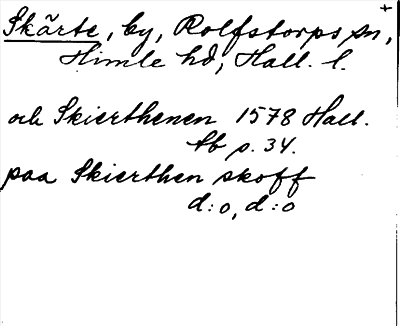 +
Skärte, by, Rolfstorps sn,
Himle hd, Hall. l.
och Skierthenen 1578 Hall.
Sb p. 34.
paa Skierthen skoff
d:o, d:o